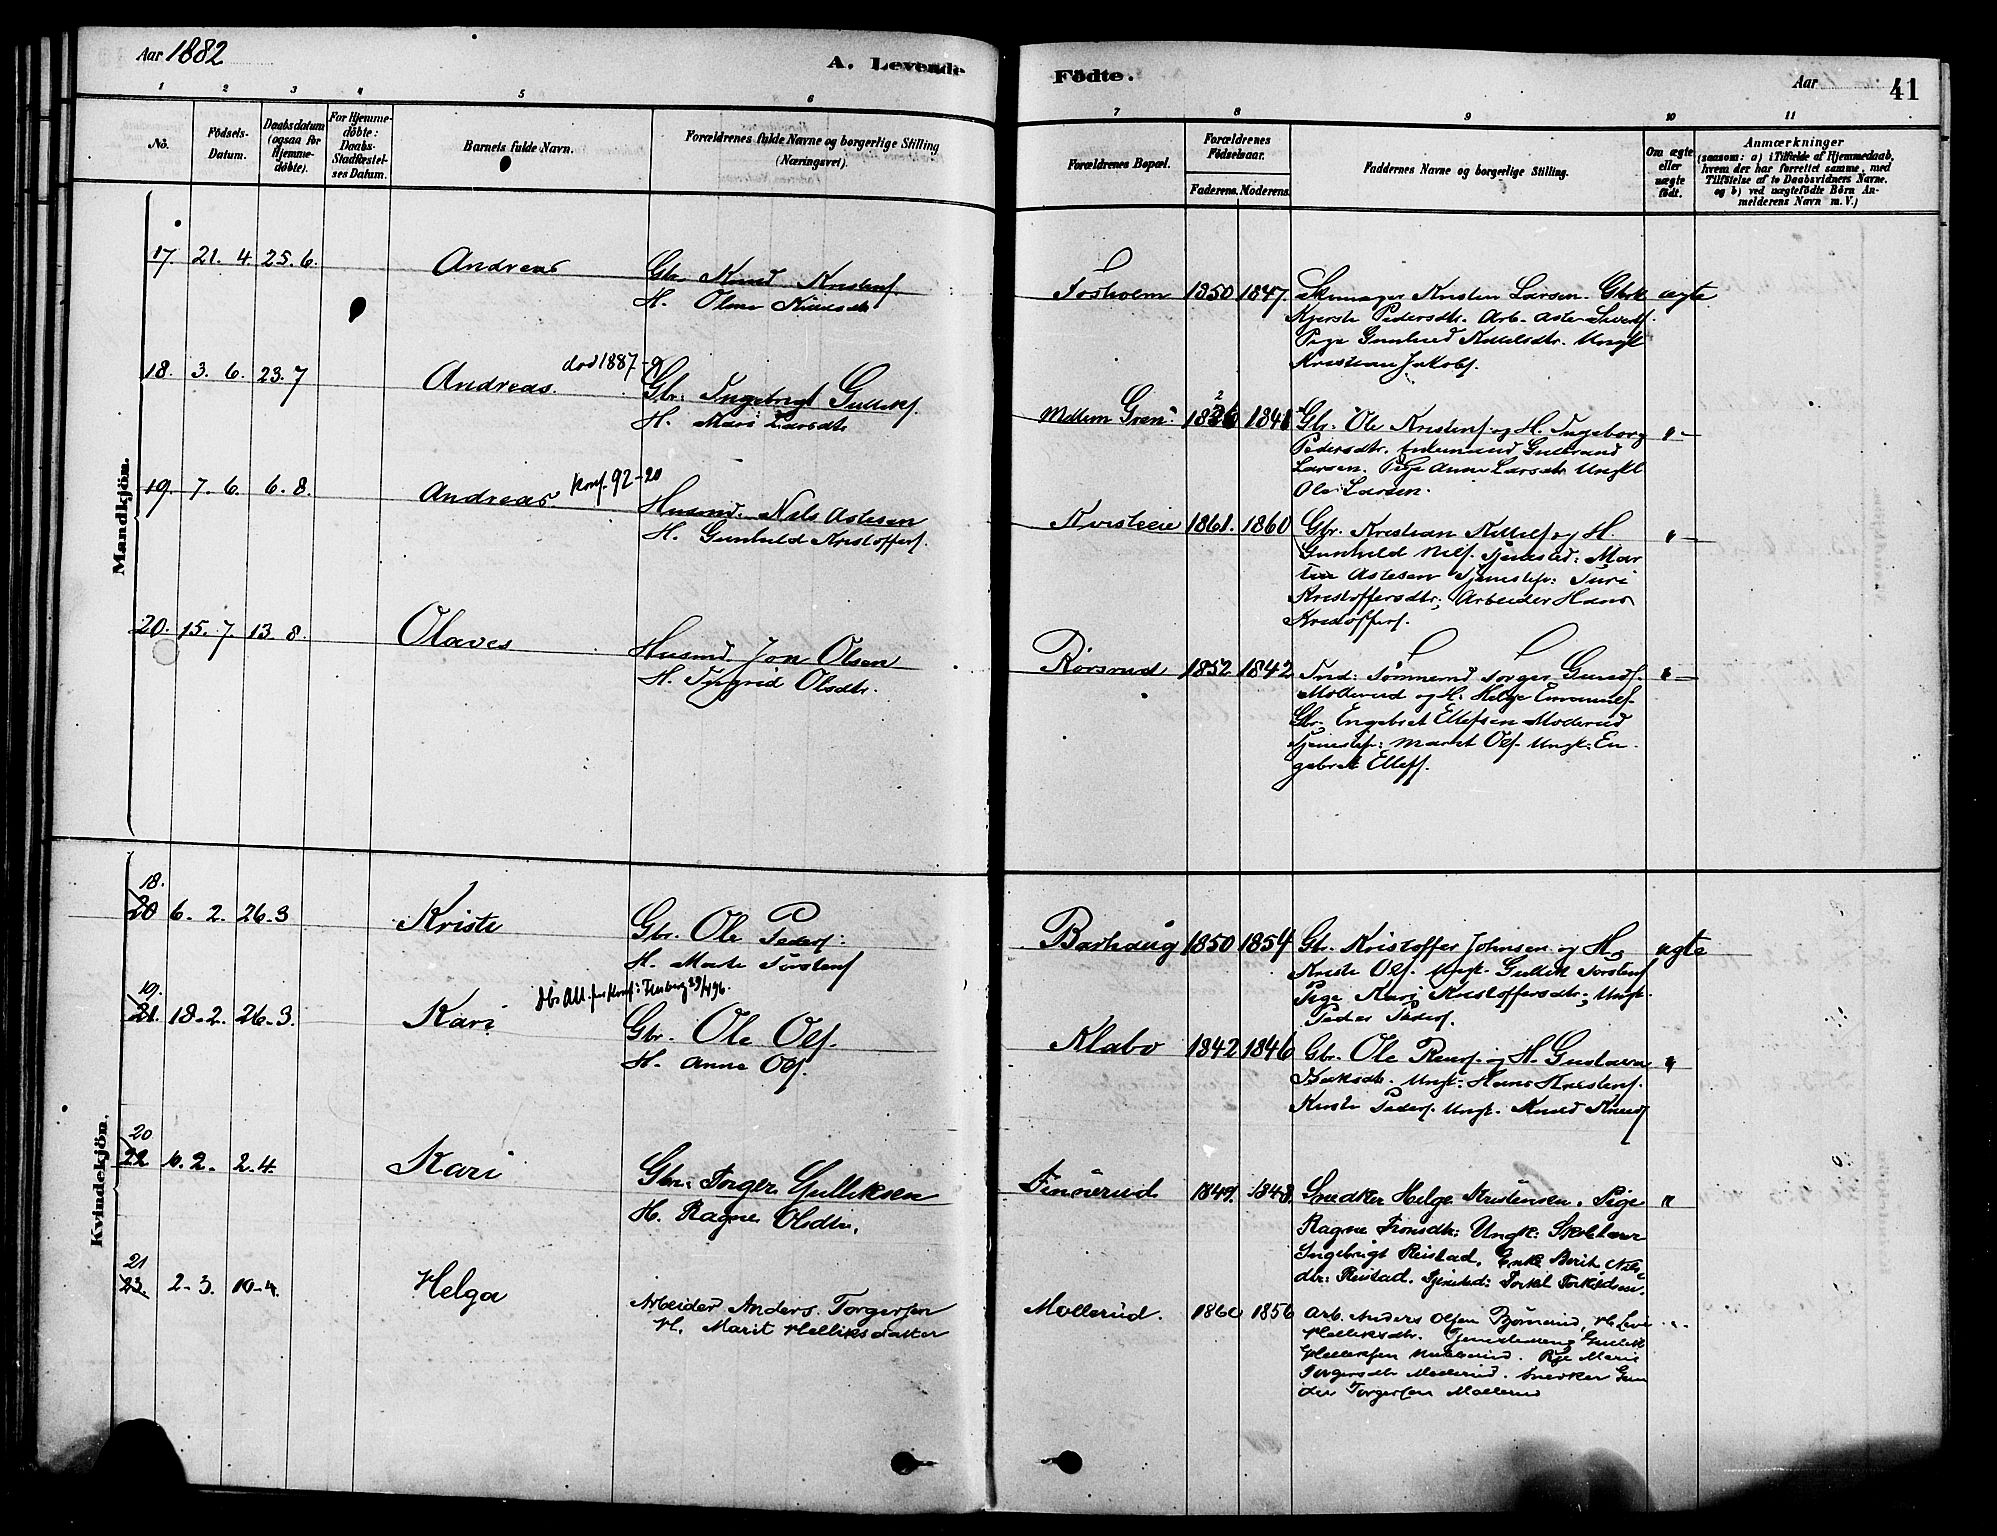 Aar 1882
A. Levende
Födte.
Aar
41
1 2 3 4 5 6
7 8 9 10 11
No.
Födsels-
Datum.
Daabsdatum
(ogsaa for
Hjemme-
döbte).
For Hjemme-
döbte:
Daabs-
Stadfæstel-
ses Datum.
Barnets fulde Navn.
Forældrenes fulde Navne og borgerlige Stilling
(Næringsvei).
Forældrenes Bopæl.
Forældrenes
Födselsaar.
Faderens. Moderens.
Faddernes Navne og borgerlige Stilling.
Om ægte
eller
uægte
født.
Anmærkninger
(saasom: a) i Tilfælde af Hjemmedaab,
hvem der har forrettet samme, med
Tilföielse af to Daabsvidners Navne,
og b) ved uægtefödte Börn An-
melderens Navn m. V.)
Mandkjön.
17. 21. 4. 25. 6.
Andreas
Gbr. Knud Kristenf.
H.
Fosholm 1850 1847
Kristen Larsen
Kjersti Pedersdtr. Arb.
Pige Gunhild Kittelsdtr. Ungk
Kristian Jakobf.
ægte
18. 3. 6. 23. 7
Andreas.
død 1887-9
Gbr. Ingebrigt Gullikf.
H. Mari Larsdtr.
Mellem Gren 1841
Gbr. Ole Kristenf. og H. Ingeborg
Pedersdtr. Gulbrand
Larsen. Pige Anne Larsdtr. Ungkl
Ole Larsen.
"-
19. 7. 6. 6. 8.
Andreas.
Konf. 92-20
Husmd. Nils Astesen
H. Gunhild Kristofferf.
1861. 1860
Gbr. Kristian Kittelf. og H.
Gunhild Nilf. Tjenested: Mar
tin Astesen Tjenestep: Turi
Kristoffersdtr; Arbeider Hans
Kristofferf.
"-
20. 15. 7. 13. 8.
Olaves
Husmd. Jon Olsen
H. Ingrid Olsdtr.
Rørsrud 1852 1842
Moderud og H. Helge
Gbr. Engebret Ellefsen Moderud
Tjenestep: Marit Olf. Ungk: En
gebret Elleff.
"-
Kvindekjön.
18.
20 6. 2. 26-3
Kristi
Gbr. Ole Pederf:
H. Marte Torstenf
Barhaug 1850 1854
Gbr. Kristoffer Johnsen og H.
Kristi Olf. Ungk. Gullik Torstenf
Pige Kari Kristoffersdtr; Ungk.
Peder Pederf.
ægte
19.
21. 18-2. 26-3.
Kari
Gbr. Ole Olf.
H. Anne Olf.
Klabo 1842 1846
Gbr. Ole og H. Gustava
Ungk: Hans Kristenf.
Kirsti Pederf. Ungk. Knud Knudf
"
20
22 2. 2.4.
Kari
Gbr: Torger Gulliksen
H. Ragne Olsdtr.
Finnerud 1849. 1848.
Snedker Helge Kristensen. Pige
Ragne Tronsdtr: Ungk:
Ingebrigt Reistad, Enke Berit Nils
dtr: Reistad. Tjensted: Torkel Torkildsen.
"
21
23. 2-3. 10-4
Helga
Arbeider Anders Torgersen
H. Marit Helliksdatter
Møllerud. 1860 1856
Arb. Anders Olsen
Helliksdtr. Gullik
Helliksen Møllerud. Pige Marie
Torgersdtr Møllerud. Snedker Gun
der Torgersen Møllerud